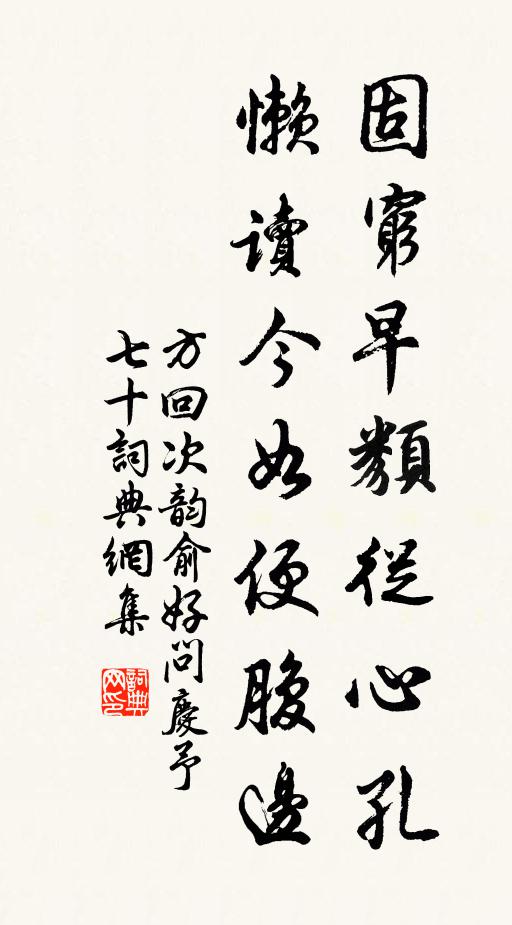 固窮早類從心孔
懶讀今如便腹邊
方回次韵俞好問慶予
七十詞典網集
詞典网印